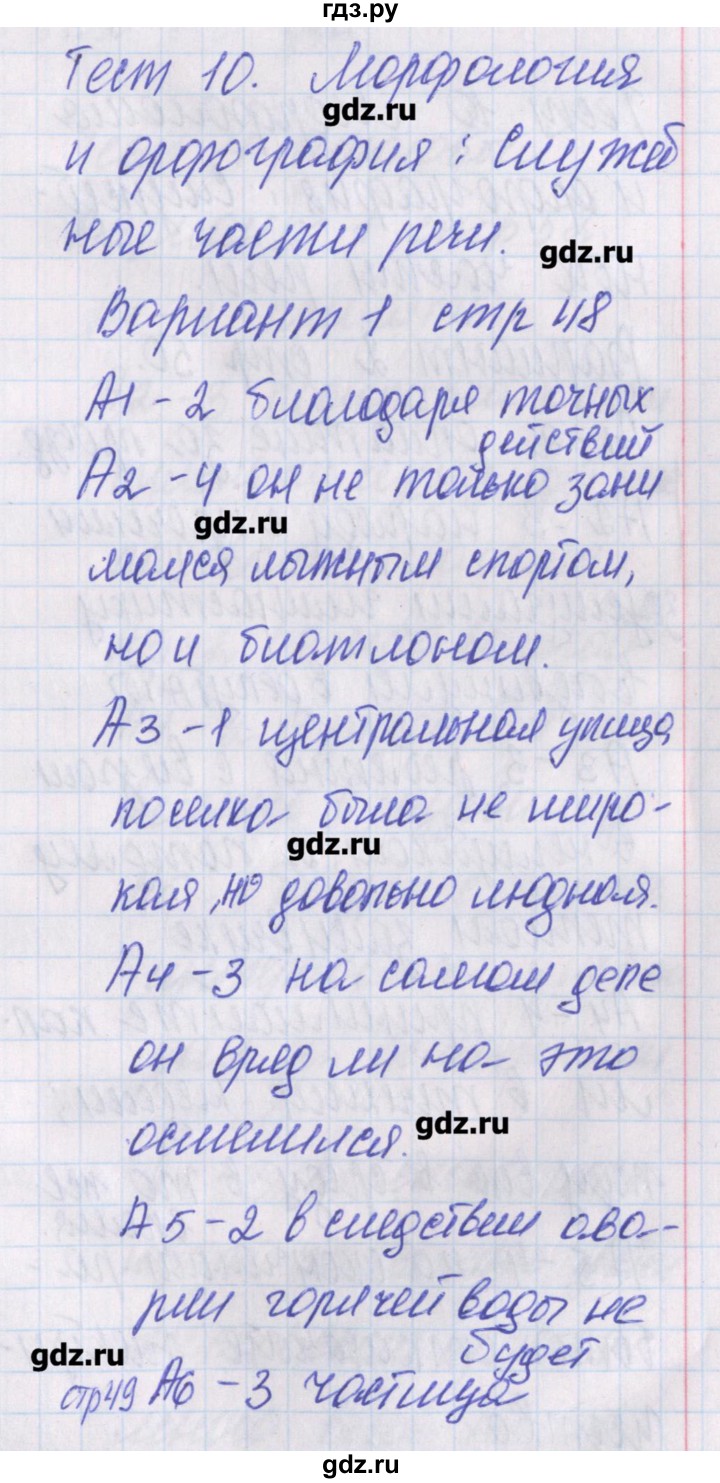 гдз.ру
Тест 10. Морфология
gdz.ru
и орфография: Служеб
ные части речи.
gdz.ru
Вариант 1 стр 48
А1-2 благодаря точных
действий
А2-4 он не только зани
gdz.ru
мался лыжным спортом,
но и биатлоном.
А3-1 центральная улица
поселка была не широ-
gdz.ru
кая, но довольно людная.
А4-3 на самом деле
он вряд ли на это
осмелился.
gdz.ru
А5-2 в следствии ава-
рии горячей воды не
будет
gdz.ru
стр49 А6-3 частица